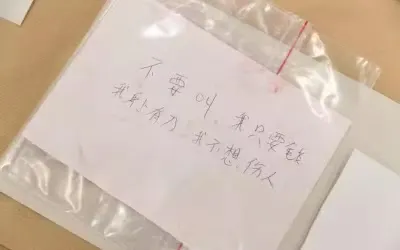 不要叫、我只要钱
我身上有刀.我不想伤人